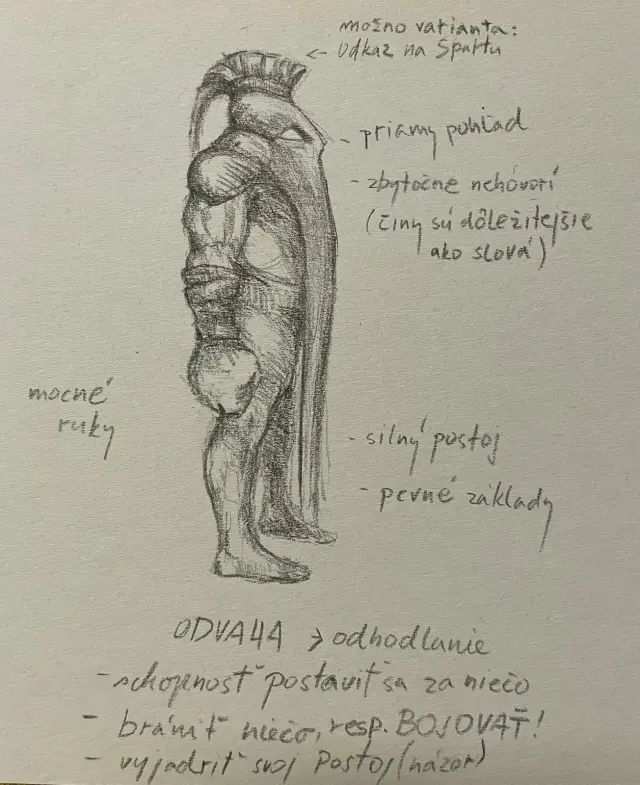 možno varianta:
← odkaz na Spartu
- priamy pohľad
- zbytočne nehovorí
(činy sú dôležitejšie
ako slová)
mocné
ruky
- silný postoj
- pevné základy
ODVAHA → odhodlanie
- schopnosť postaviť sa za niečo
- brániť niečo, resp. BOJOVAŤ!
- vyjadriť svoj Postoj (názor)